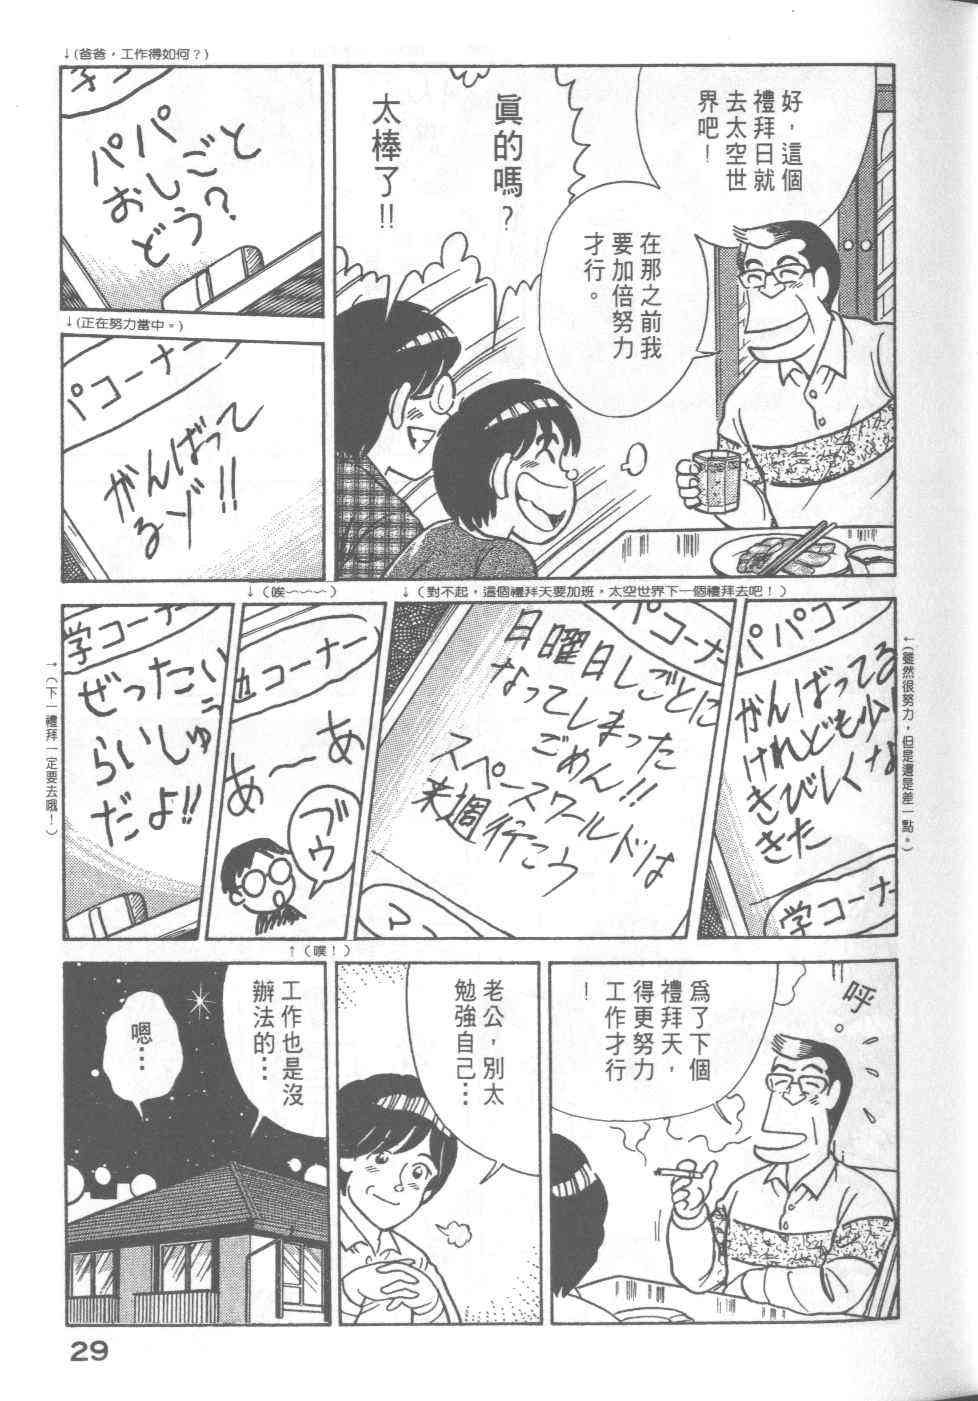 好，這個
禮拜日就
去太空世
界吧！
在那之前我
要加倍努力
才行。
眞的嗎？
太棒了!!
↓(爸爸，工作得如何？)
パパ
おしごと
どう？
↓(正在努力當中。)
パコーナー
がんばって
るゾ!!
←(雖然很努力，但是還是差一點。)
パパコー
がんばってる
けれども少
きびしくな
きた
学コーナー
↓（對不起，這個禮拜天要加班，太空世界下一個禮拜去吧！）
パコーナー
日曜日しごとに
なってしまった
ごめん!!
スペースワールドは
来週行こウ
マン
↓（唉~~~）
コーナー
あ～あ
ブウ
↑（噗！）
→（下一禮拜一定要去哦！）
学コーナー
ぜったい
らいしゅ
だよ!!
呼。
爲了下個
禮拜天，
得更努力
工作才行
！
老公，別太
勉強自己…
工作也是沒
辦法的…
嗯…
29